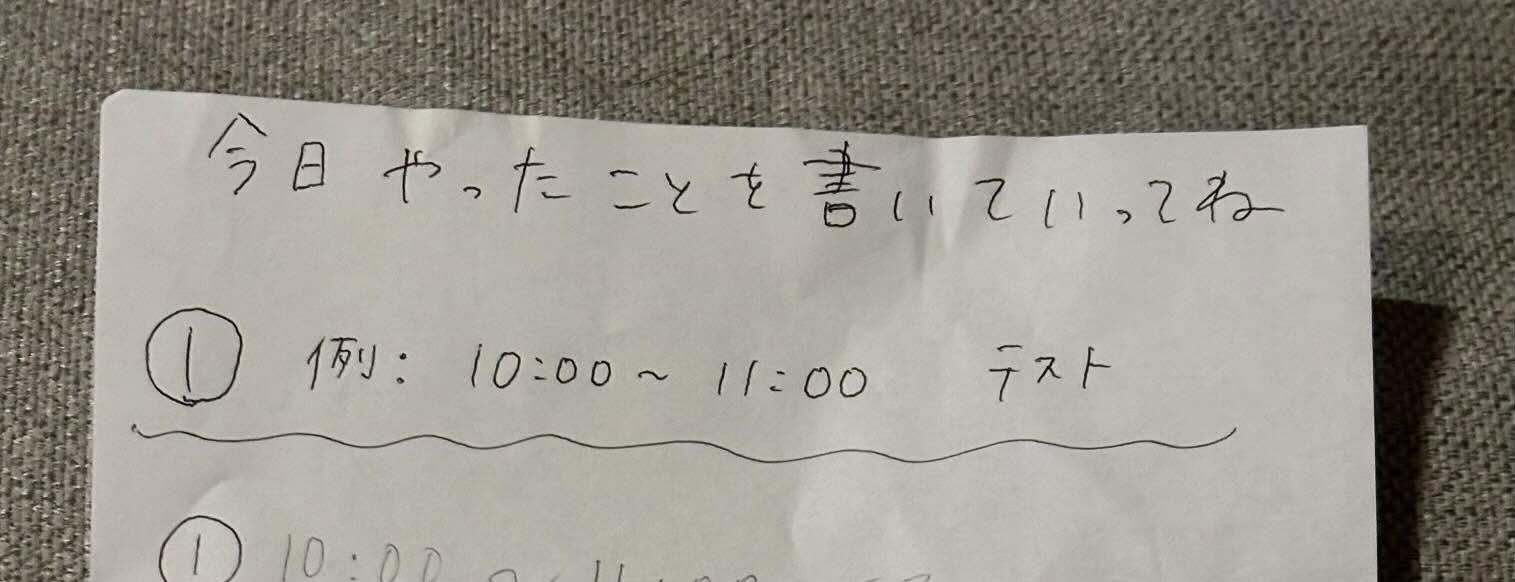 今日やったことを書いていってね
① 例: 10:00~11:00 テスト
① 10:00~11:00